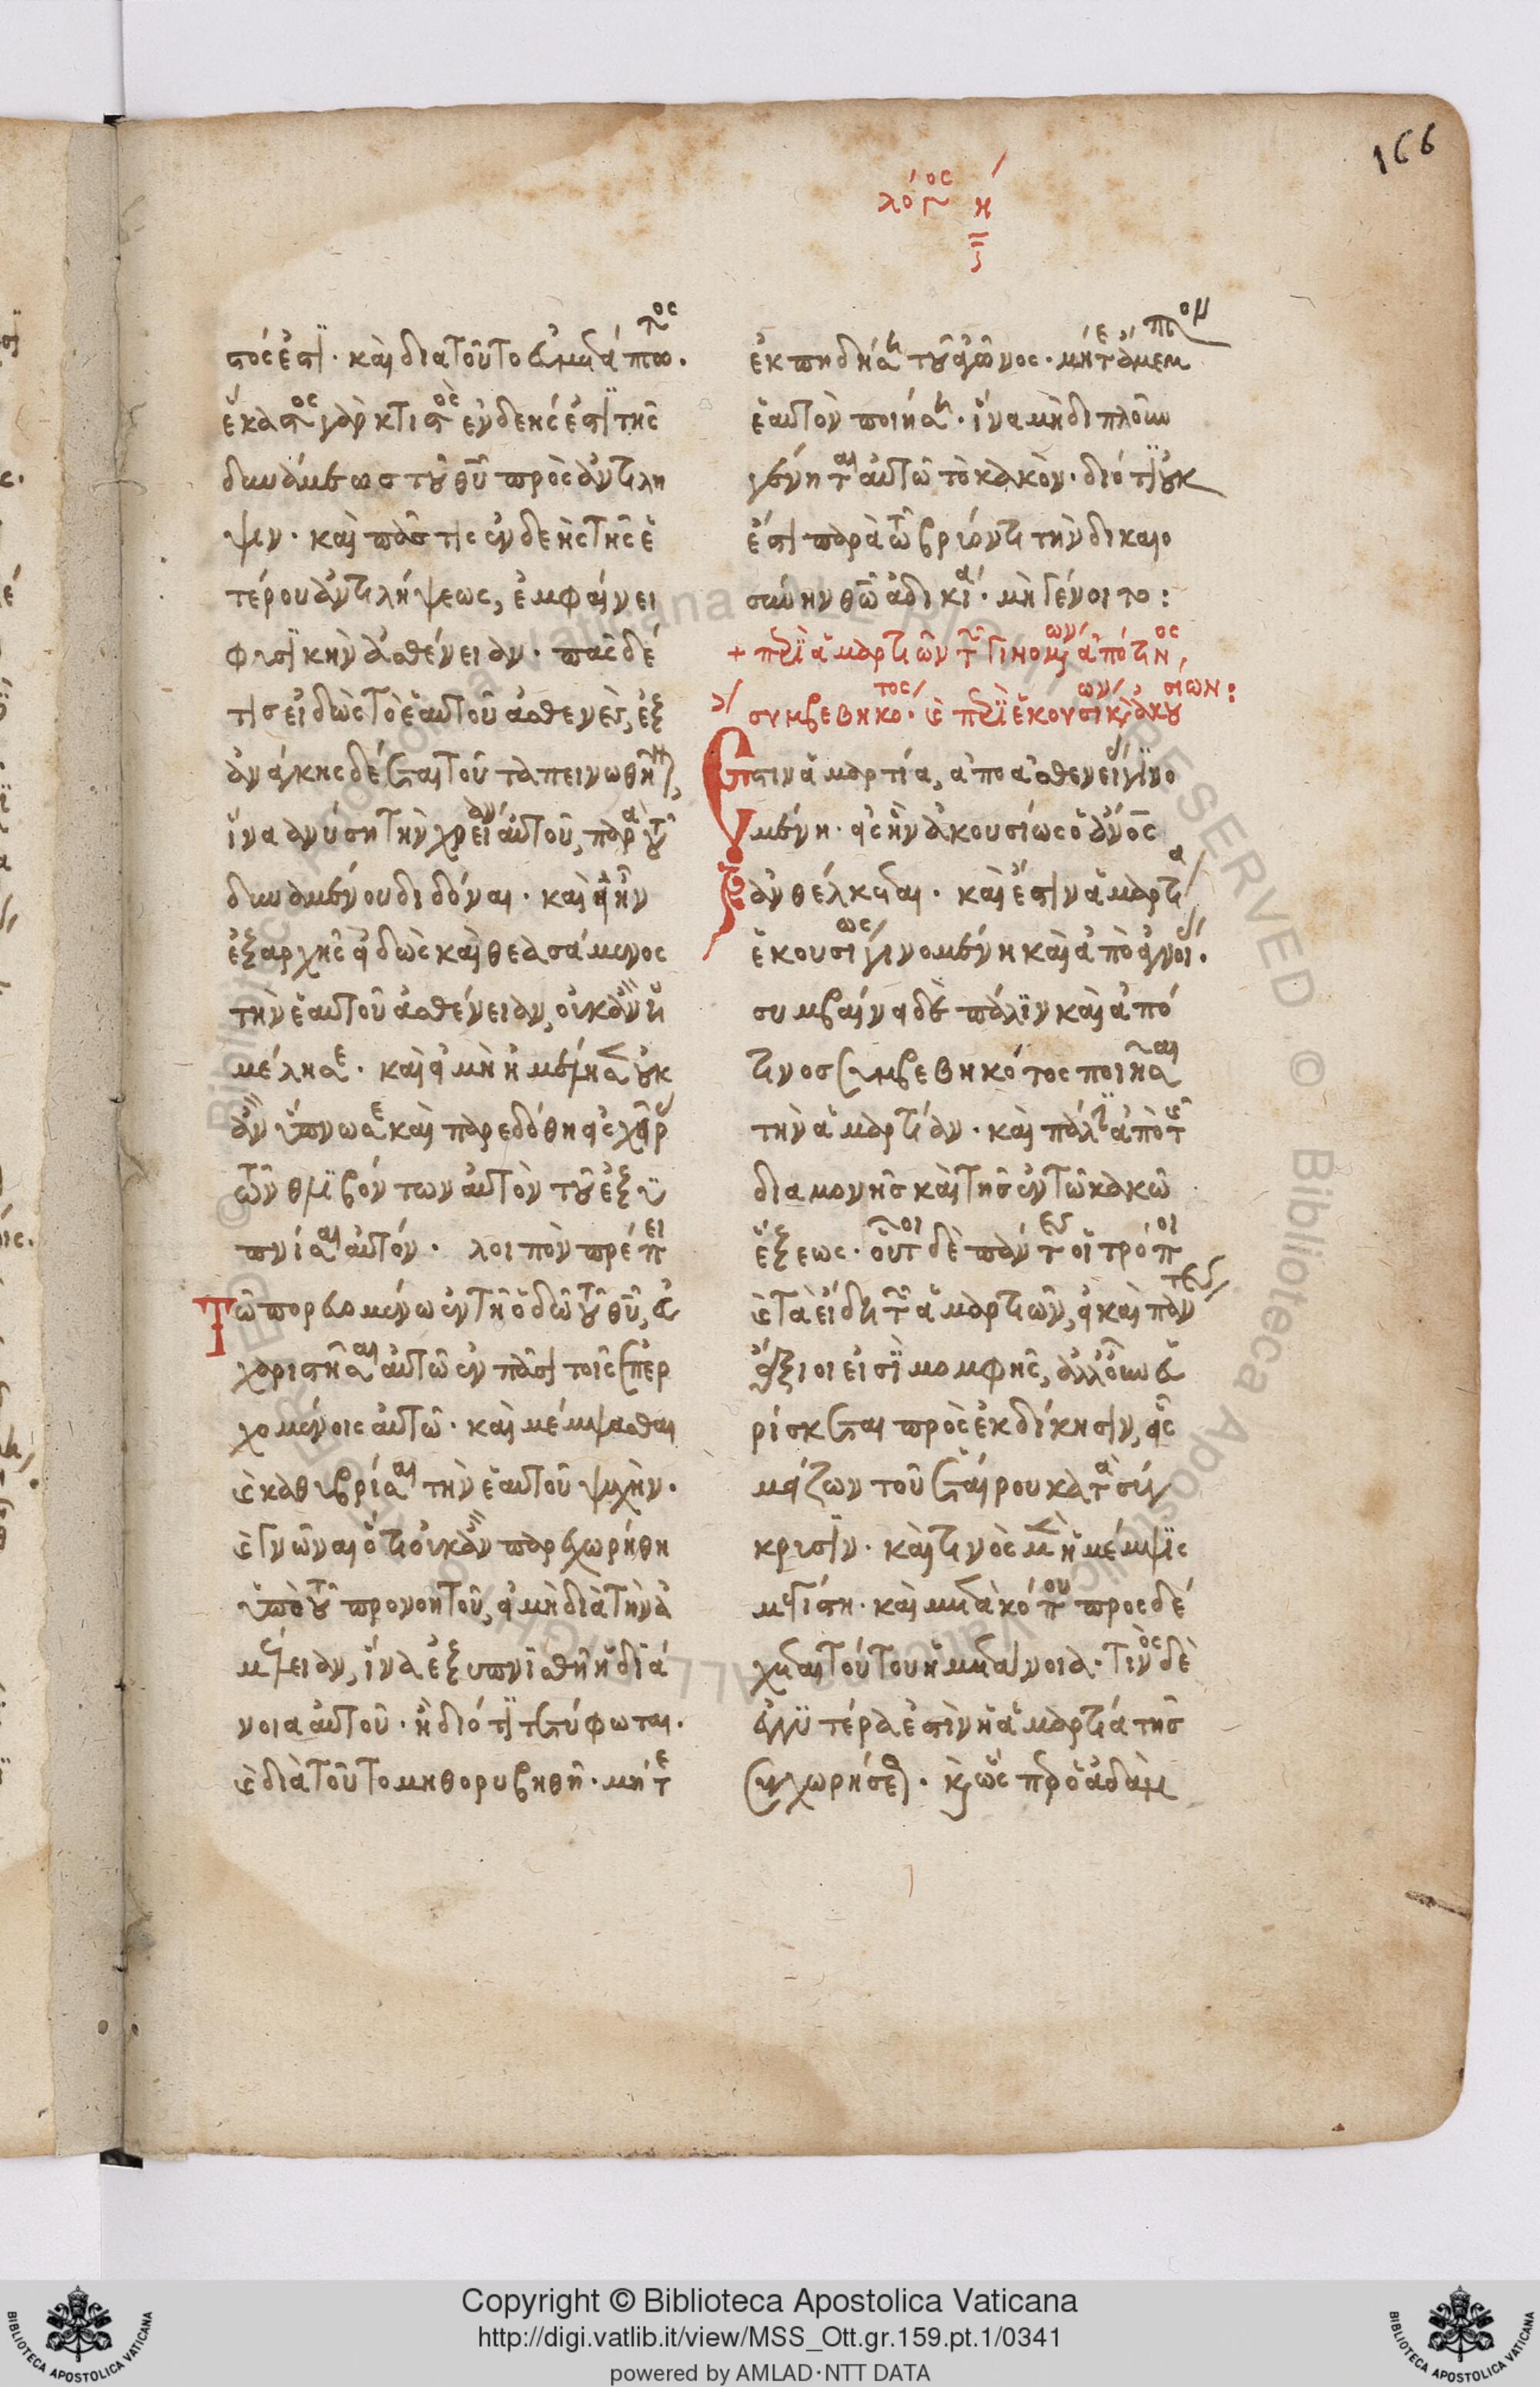 166
λόγος η
στός ἐστι· καὶ διὰ τοῦτο εὐμετάπτωτος.
ἕκαστος γὰρ κτιστὸς ἐνδεής ἐστι τῆς
δυνάμεως τοῦ θυ πρὸς ἀντίλη
ψιν· καὶ πᾶς τις ἐνδεὴς τῆς ἑ
τέρου ἀντιλήψεως, ἐμφαίνει
φυσικὴν ἀσθένειαν· πᾶς δέ
τις εἰδὼς τὸ ἑαυτοῦ ἀσθενές, ἐξ
ἀνάγκης δέεται τοῦ ταπεινωθῆναι,
ἵνα ἀνύσῃ τὴν χρείαν αὐτοῦ, παρὰ τοῦ
δυναμένου διδόναι· καὶ εἰ ἦν
ἐξαρχῆς εἰδὼς καὶ θεασάμενος
τὴν ἑαυτοῦ ἀσθένειαν, οὐκ ἂν ἠ
μέλησε· καὶ εἰ μὴ ἠμέλησεν οὐκ
ἂν ὕπνωσε καὶ παρεδόθη εἰς χεῖρας
τῶν θλιβόντων αὐτὸν τοῦ ἐξυ
πνίσαι αὐτόν· λοιπὸν πρέπει
Τῶ πορευομένω ἐν τῇ ὁδῶ τοῦ θυ, εὐ
χαριστῆσαι αὐτῶ ἐν πᾶσι τοῖς ὑπερ
χομένοις αὐτῶ· καὶ μέμψασθαι
καὶ καθυβρίσαι τὴν ἑαυτοῦ ψυχήν·
καὶ γνῶναι ὅτι οὐκ ἂν παρεχωρήθη
ὑπὸ τοῦ προνοητοῦ, εἰ μὴ διὰ τὴν ἀ
μέλειαν, ἵνα ἐξυπνισθῇ ἡ διά
νοια αὐτοῦ· ἢ διότι τετύφωται·
καὶ διὰ τοῦτο μὴ θορυβηθῇ· μήτε
ἐκπηδήσῃ τοῦ ἀγῶνος· μήτε ἄμεμπτον
ἑαυτὸν ποιήσῃ· ἵνα μὴ διπλοῦν
γένηται αὐτῶ τὸ κακόν· διότι οὐκ
ἔστι παρὰ τῶ βρύοντι τὴν δικαιο
σύνην θῶ ἀδικία· μὴ γένοιτο:
+ περὶ ἁμαρτιῶν τῶν γινομένων ἀπό τινος
συμβεβηκότος· καὶ περὶ ἑκουσίων καὶ ἀκουσίων:
Ἔστιν ἁμαρτία, ἀπὸ ἀσθενείας γινο
μένη· εἰς ἣν ἀκουσίως ὁ ἄνος
ἀνθέλκεται· καὶ ἔστιν ἁμαρτία
ἑκουσίως γινομένη καὶ ἀπὸ ἀγνοίας·
συμβαίνει δὲ πάλιν καὶ ἀπό
τινος συμβεβηκότος ποιῆσαι
τὴν ἁμαρτίαν· καὶ πάλιν ἀπὸ τῆς
διαμονῆς καὶ τῆς ἐν τῶ κακῶ
ἕξεως· οὗτοι δὲ πάντες οἱ τρόποι
καὶ τὰ εἴδη τῶν ἁμαρτιῶν, εἰ καὶ πάντες
ἄξιοί εἰσι μομφῆς, ἀλλ' οὖν εὑ
ρίσκεται πρὸς ἐκδίκησιν, εἷς
μείζων τοῦ ἑταίρου κατὰ σύγ
κρισιν· καὶ τινὸς μὲν ἡ μέμψις
μεγίστη· καὶ μετὰ κόπου προσδέ
χεται τούτου ἡ μετάνοια· τινὸς δὲ
ἐγγυτέρα ἐστὶν ἡ ἁμαρτία τῆς
συγχωρήσεως· καὶ ὥσπερ ὁ ἀδὰμ
Copyright © Biblioteca Apostolica Vaticana
http://digi.vatlib.it/view/MSS_Ott.gr.159.pt.1/0341
powered by AMLAD·NTT DATA